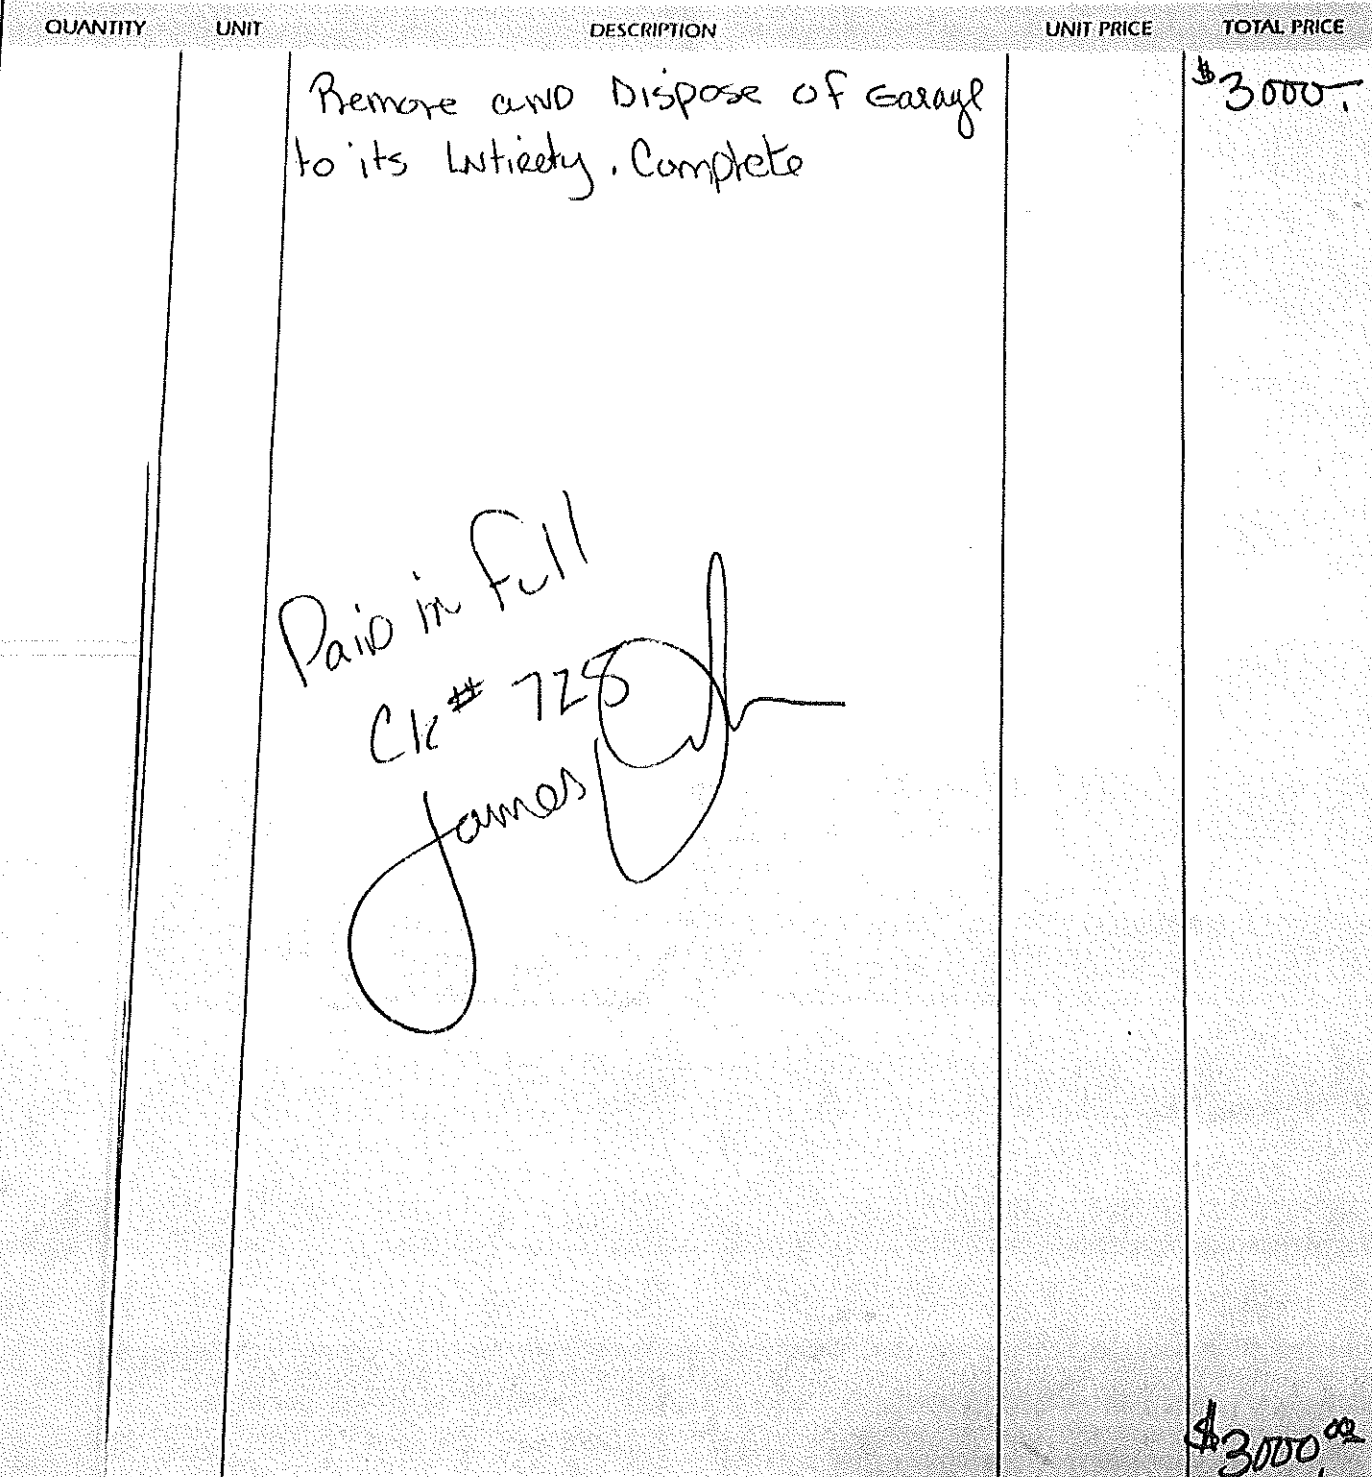 QUANTITY UNIT DESCRIPTION UNIT PRICE TOTAL PRICE
Remove and Dispose of Garage $3000.
to its Intirety. Complete
Paid in Full
Ck# 728
James
$3000.00